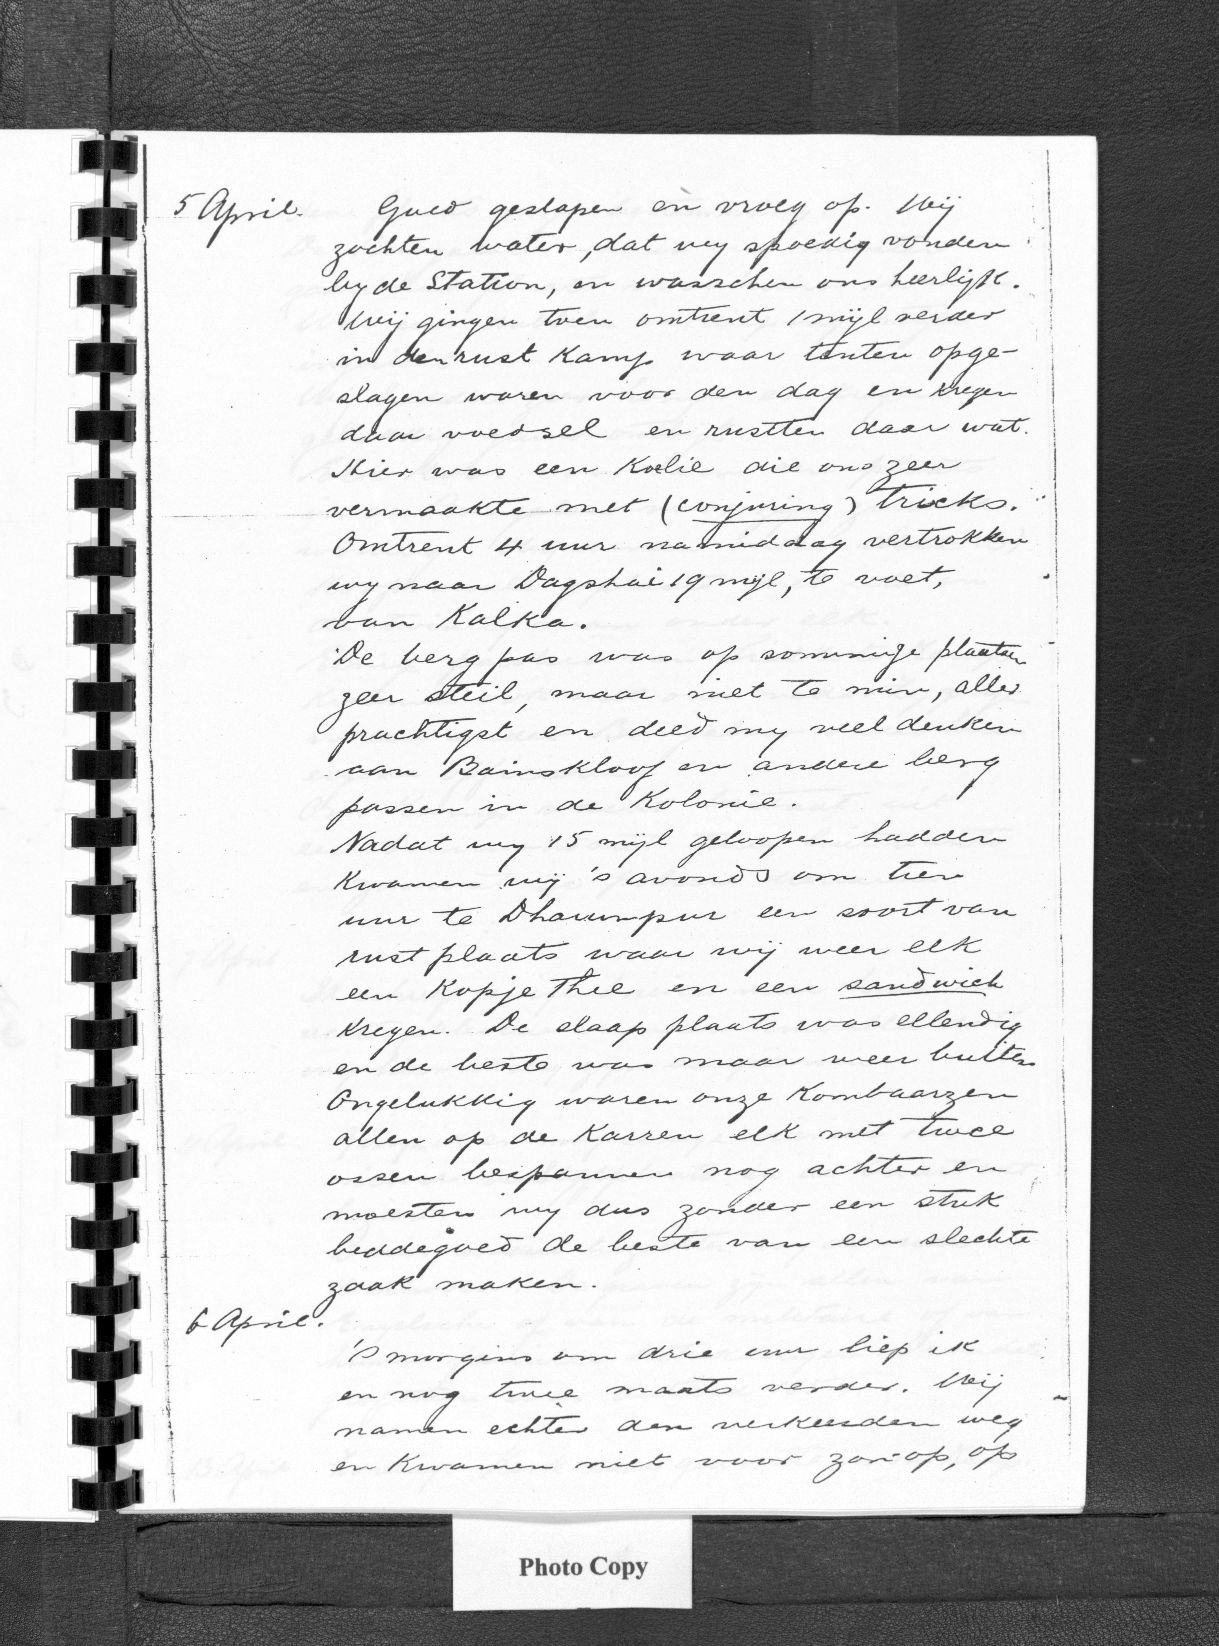 5 April. Goed geslapen en vroeg op. Wij
zochten water, dat wy spoedig vonden
by de Station, en wasschen ons heerlijk.
Wij gingen toen omtrent 1 mijl verder
in den rust Kamp waar tenten opge-
slagen waren voor den dag en kregen
daar voedsel en rustten daar wat.
Hier was een Koelie die ons zeer
vermaakte met (conjuring) tricks.
Omtrent 4 uur namiddag vertrokken
wy naar Dagshai 19 mijl, te voet,
van Kalka.
De berg pas was op sommige plaatsen
zeer steil, maar niet te min, aller
prachtigst en deed my veel denken
aan Bainskloof en andere berg
passen in de Kolonie.
Nadat wy 15 mijl geloopen hadden
Kwamen wij 's avonds om tien
uur te Dharumpur een soort van
rust plaats waar wij weer elk
een Kopje Thee en een sandwich
Kregen. De slaap plaats was ellendig
en de beste was maar weer buiten
Ongelukkig waren onze Kombaarzen
allen op de Karren elk met twee
ossen bespannen nog achter en
moesten wy dus zonder een stuk
beddegoed de beste van een slechte
zaak maken.
6 April.
's morgens om drie uur liep ik
en nog twee maats verder. Wij
namen echter den verkeerden weg
en Kwamen niet voor zon op, op
Photo Copy